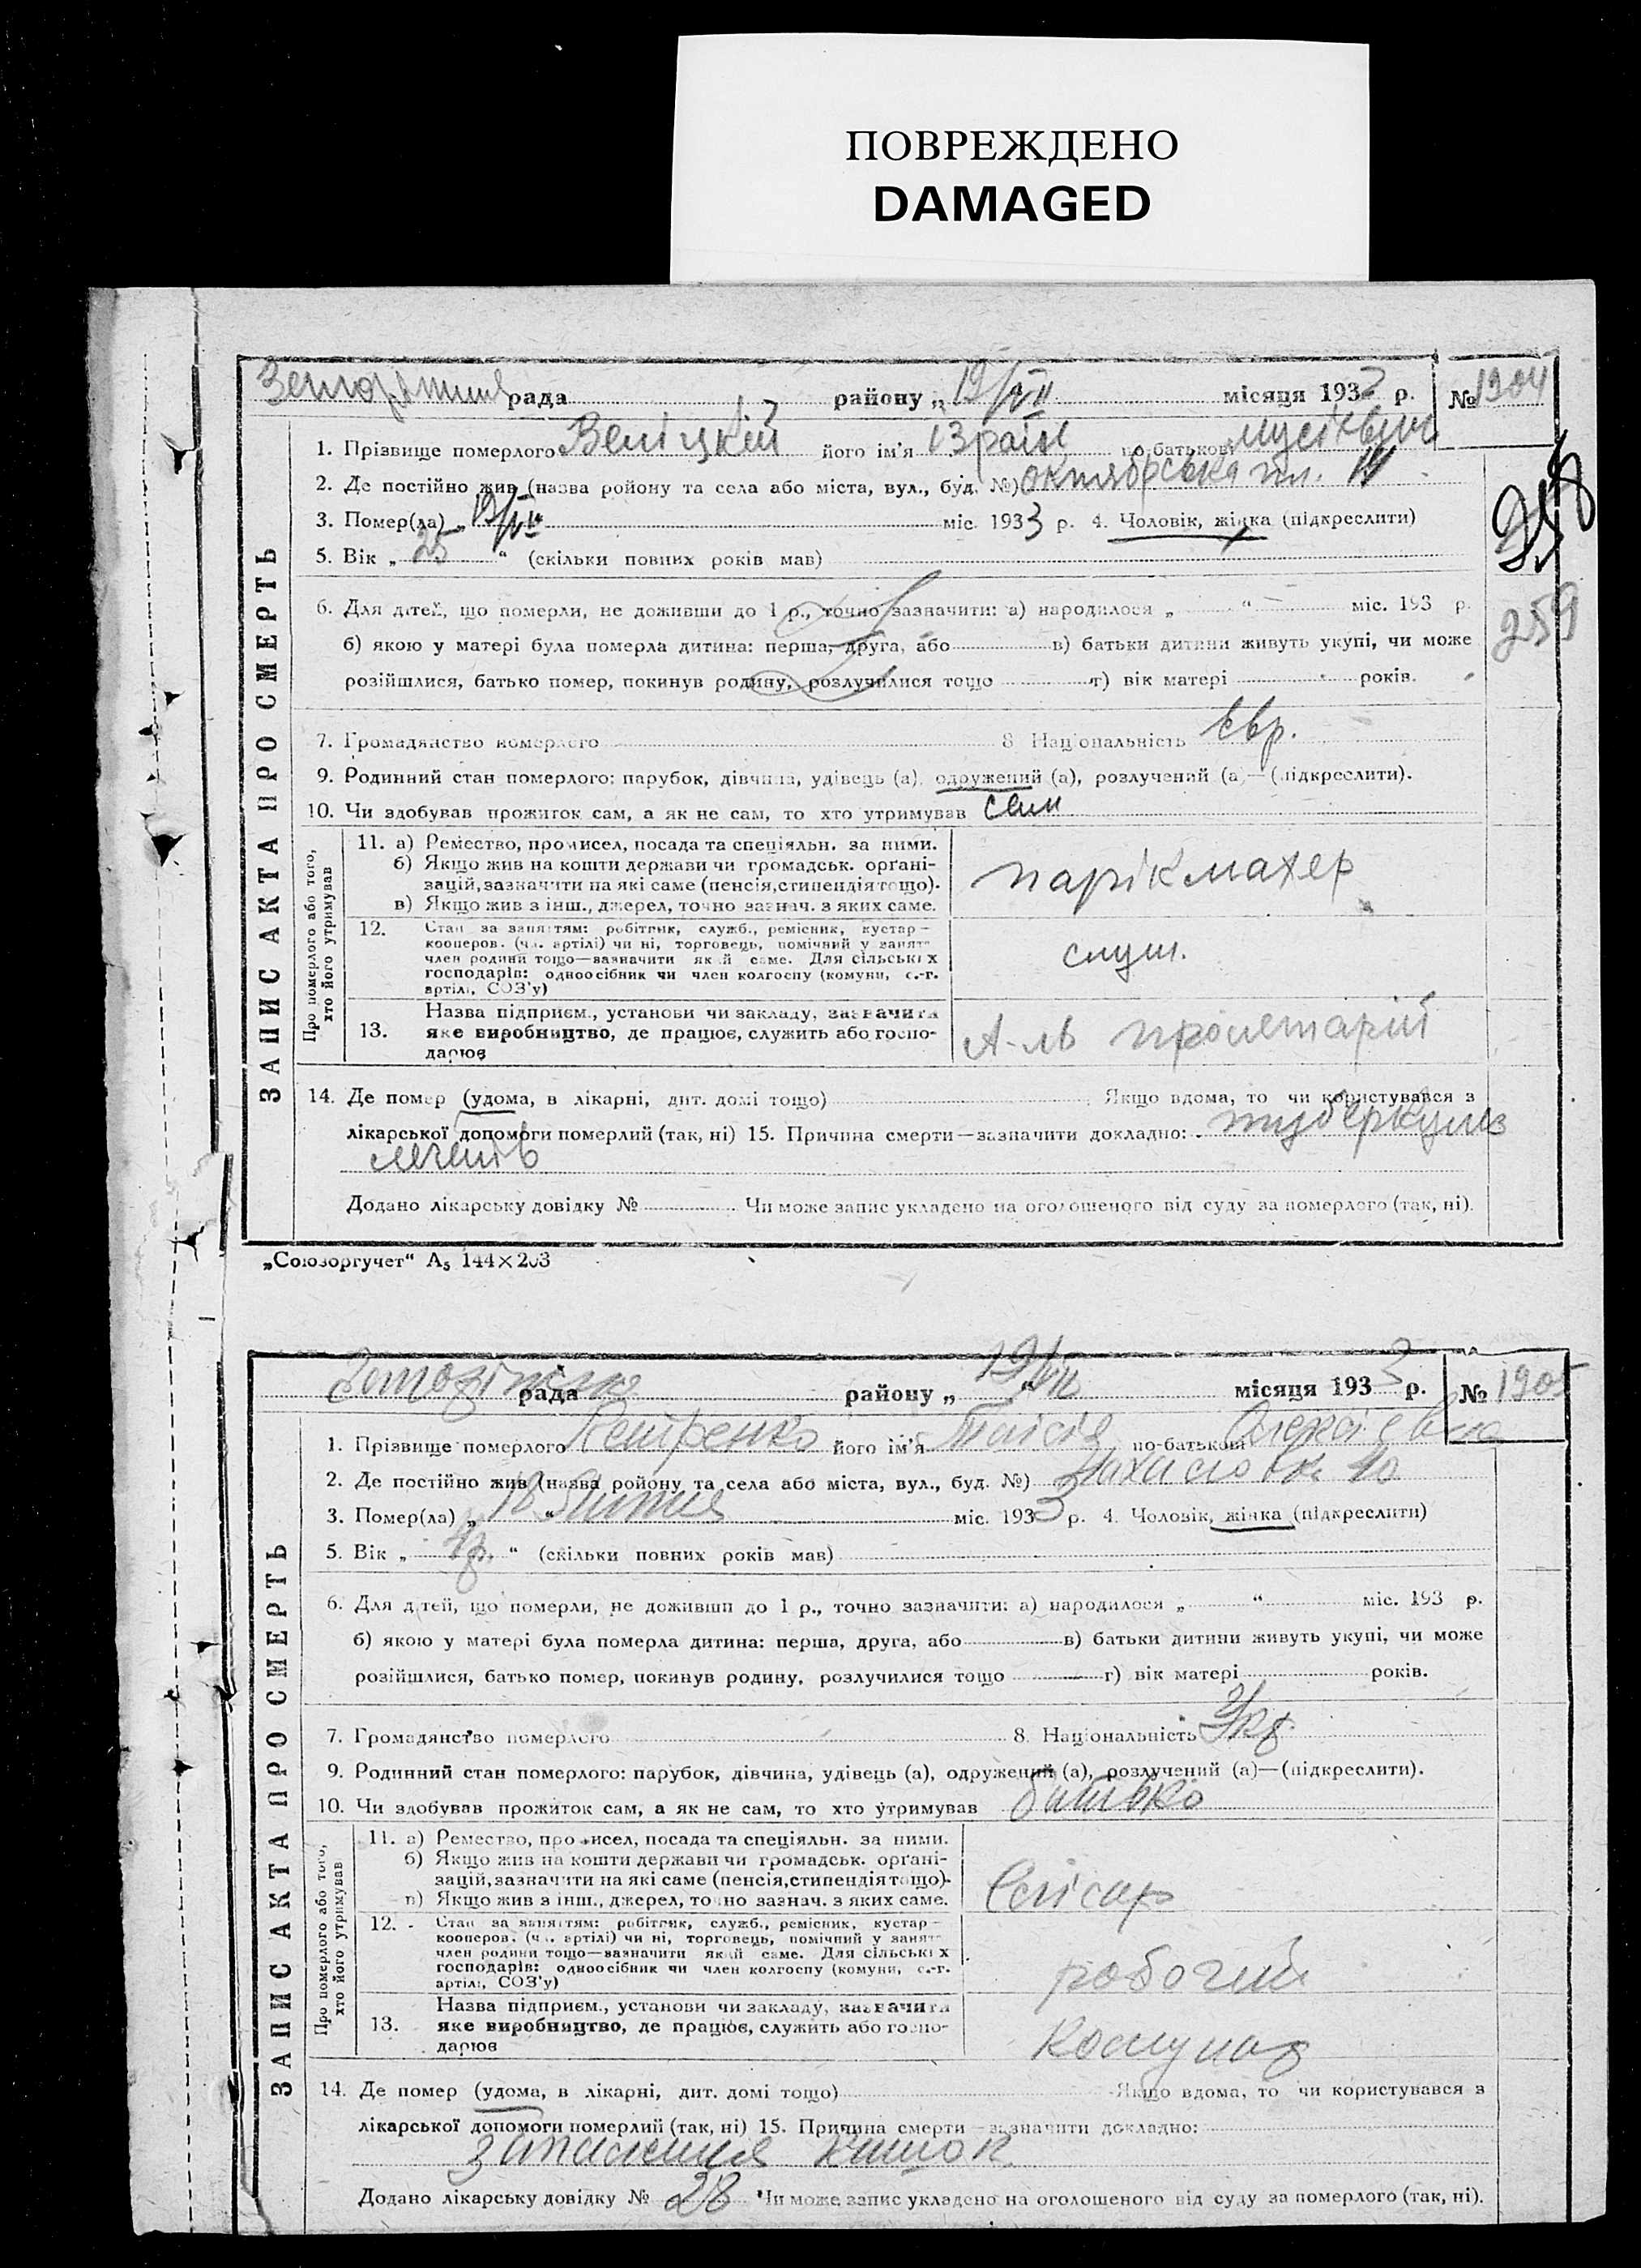 ПОВРЕЖДЕНО
DAMAGED
рада району „ 19/VII місяця 1933 р. № 1904
1. Прізвище померлого Веліцкій його ім'я Ізраїл по-батькові
2. Де постійно жив (назва ройону та села або міста, вул., буд. №) октябрська пл. 14
3. Помер(ла) „ міс. 1933 р. 4. Чоловік, жінка (підкреслити)
5. Вік „ 25 “ (скільки повних років мав)
6. Для дітей, що померли, не доживши до 1 р., точно зазначити: а) народилося „ “ міс. 193 р.
б) якою у матері була померла дитина: перша, друга, або в) батьки дитини живуть укупі, чи може
розійшлися, батько помер, покинув родину, розлучилися тощо г) вік матері років.
259
7. Громадянство померлого 8. Національність євр.
9. Родинний стан померлого: парубок, дівчина, удівець (а), одружений (а), розлучений (а)—(підкреслити).
10. Чи здобував прожиток сам, а як не сам, то хто утримував сам
ЗАПИС АКТА ПРО СМЕРТЬ
Про померлого або того, хто його утримував
11. а) Ремество, промисел, посада та спеціяльн. за ними.
б) Якщо жив на кошти держави чи громадськ. орґані-
зацій, зазначити на які саме (пенсія, стипендія тощо).
в) Якщо жив з інш., джерел, точно зазнач. з яких саме.
парікмахер
12. Стан за заняттям: робітник, служб., ремісник, кустар—
кооперов. (чл. артілі) чи ні, торговець, помічний у занят.
член родини тощо—зазначити який саме. Для сільських
господарів: одноосібник чи член колгоспу (комуни, с.-г.
артілі, СОЗ'у)
служ.
13. Назва підприєм., установи чи закладу, зазначити
яке виробництво, де працює, служить або госпо-
дарює
А-ль пролетарій
14. Де помер (удома, в лікарні, дит. домі тощо) Якщо вдома, то чи користувався з
лікарської допомоги померлий (так, ні) 15. Причина смерти—зазначити докладно: туберкульоз
легенів
Додано лікарську довідку № Чи може запис укладено на оголошеного від суду за померлого (так, ні).
„Союзоргучет“ А5 144×203
рада району „ 19/VII місяця 1933 р. № 1905
1. Прізвище померлого Петренко його ім'я Таісія по-батькові Олексіївна
2. Де постійно жив (назва ройону та села або міста, вул., буд. №)
3. Помер(ла) „ 18 “ Липня міс. 1933 р. 4. Чоловік, жінка (підкреслити)
5. Вік „ “ (скільки повних років мав)
6. Для дітей, що померли, не доживши до 1 р., точно зазначити: а) народилося „ “ міс. 193 р.
б) якою у матері була померла дитина: перша, друга, або в) батьки дитини живуть укупі, чи може
розійшлися, батько помер, покинув родину, розлучилися тощо г) вік матері років.
7. Громадянство померлого 8. Національність Укр.
9. Родинний стан померлого: парубок, дівчина, удівець (а), одружений (а), розлучений (а)—(підкреслити).
10. Чи здобував прожиток сам, а як не сам, то хто утримував батько
ЗАПИС АКТА ПРО СМЕРТЬ
Про померлого або того, хто його утримував
11. а) Ремество, промисел, посада та спеціяльн. за ними.
б) Якщо жив на кошти держави чи громадськ. орґані-
зацій, зазначити на які саме (пенсія, стипендія тощо).
в) Якщо жив з інш., джерел, точно зазнач. з яких саме.
Слісар
12. Стан за заняттям: робітник, служб., ремісник, кустар—
кооперов. (чл. артілі) чи ні, торговець, помічний у занят.
член родини тощо—зазначити який саме. Для сільських
господарів: одноосібник чи член колгоспу (комуни, с.-г.
артілі, СОЗ'у)
робочий
13. Назва підприєм., установи чи закладу, зазначити
яке виробництво, де працює, служить або госпо-
дарює
Комунар
14. Де помер (удома, в лікарні, дит. домі тощо) Якщо вдома, то чи користувався з
лікарської допомоги померлий (так, ні) 15. Причина смерти—зазначити докладно:
запалення кишок
Додано лікарську довідку № 28 Чи може запис укладено на оголошеного від суду за померлого (так, ні).